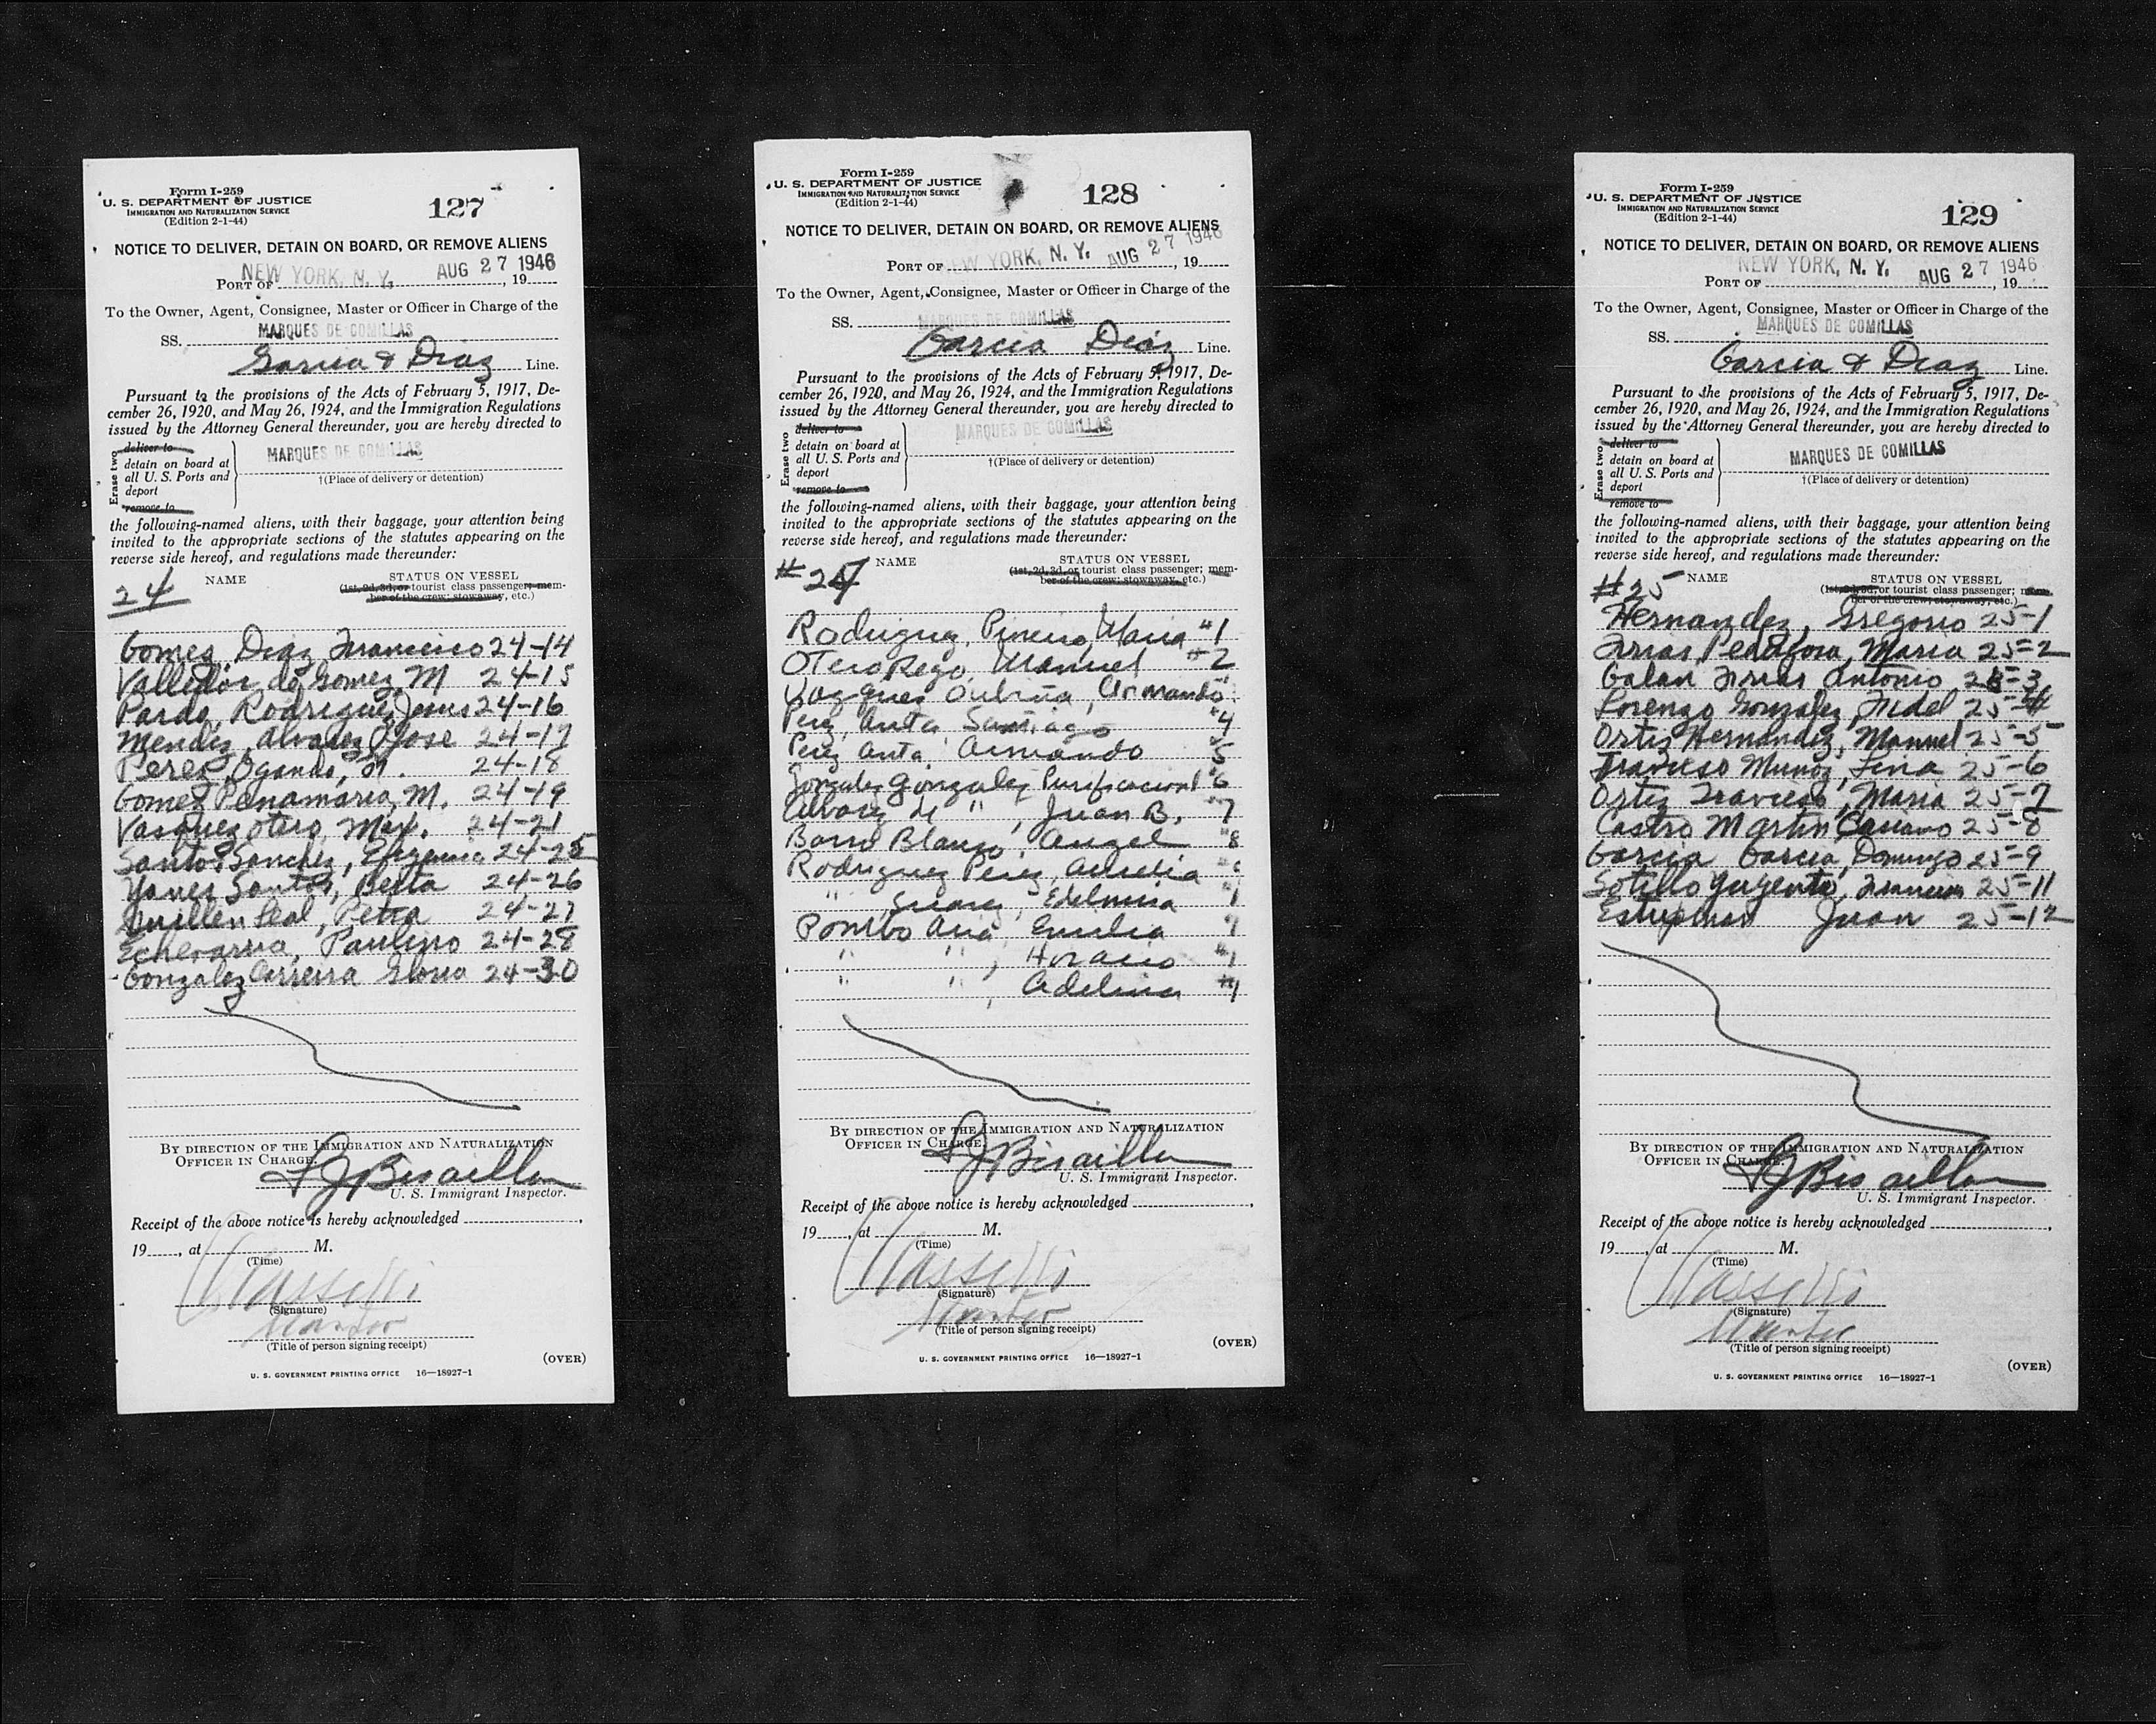 Form I-259
U. S. DEPARTMENT OF JUSTICE
IMMIGRATION AND NATURALIZATION SERVICE
(Edition 2-1-44)
127
NOTICE TO DELIVER, DETAIN ON BOARD, OR REMOVE ALIENS
PORT OF NEW YORK, N. Y. AUG 27 1946, 19
To the Owner, Agent, Consignee, Master or Officer in Charge of the
SS. MARQUES DE COMILLAS
Garcia & Diaz Line.
Pursuant to the provisions of the Acts of February 5, 1917, De-
cember 26, 1920, and May 26, 1924, and the Immigration Regulations
issued by the Attorney General thereunder, you are hereby directed to
Erase two
deliver to
detain on board at
all U. S. Ports and
deport
remove to
MARQUES DE COMILLAS
†(Place of delivery or detention)
the following-named aliens, with their baggage, your attention being
invited to the appropriate sections of the statutes appearing on the
reverse side hereof, and regulations made thereunder:
24
NAME STATUS ON VESSEL
(1st, 2d, 3d, or tourist class passenger; mem-
ber of the crew; stowaway, etc.)
Gomez Diaz Francisco 24-14
Valledor de Gomez, M 24-15
Pardo, Rodriguez Jesus 24-16
Mendez, Alvarez Jose 24-17
Perez, Ogando, M. 24-18
Gomez Penamaria, M. 24-19
Vasquez Otero, Max. 24-21
Santos Sanchez, 24-25
Yanes Santos, Berta 24-26
Guillen Leal, Petra 24-27
Echevarria, Paulino 24-28
Gonzalez Carreira Gloria 24-30
BY DIRECTION OF THE IMMIGRATION AND NATURALIZATION
OFFICER IN CHARGE.
Bisaillon
U. S. Immigrant Inspector.
Receipt of the above notice is hereby acknowledged ,
19 , at M.
(Time)
(Signature)
Master
(Title of person signing receipt)
(OVER)
U. S. GOVERNMENT PRINTING OFFICE 16—18927-1
Form I-259
U. S. DEPARTMENT OF JUSTICE
IMMIGRATION AND NATURALIZATION SERVICE
(Edition 2-1-44)
128
NOTICE TO DELIVER, DETAIN ON BOARD, OR REMOVE ALIENS
PORT OF NEW YORK, N. Y. AUG 27 1946, 19
To the Owner, Agent, Consignee, Master or Officer in Charge of the
SS. MARQUES DE COMILLAS
Garcia Diaz Line.
Pursuant to the provisions of the Acts of February 5, 1917, De-
cember 26, 1920, and May 26, 1924, and the Immigration Regulations
issued by the Attorney General thereunder, you are hereby directed to
Erase two
deliver to
detain on board at
all U. S. Ports and
deport
remove to
MARQUES DE COMILLAS
†(Place of delivery or detention)
the following-named aliens, with their baggage, your attention being
invited to the appropriate sections of the statutes appearing on the
reverse side hereof, and regulations made thereunder:
NAME STATUS ON VESSEL
(1st, 2d, 3d, or tourist class passenger; mem-
ber of the crew; stowaway, etc.)
Rodriguez, Pineiro, Maria #1
Otero Rego, Manuel #2
Vazquez Oubiña, Armando
Perez, Anta, Santiago #4
Perez Anta, Armando 5
Gonzalez Gonzalez Purificacion #6
Alvarez de ", Juan B. "7
Barro Blanco, Angel "8
Rodriguez Perez, Aurelia
" Suarez, Edelmira
Pombo Aria, Emilia
" ", Horacio
" ", Adelina
BY DIRECTION OF THE IMMIGRATION AND NATURALIZATION
OFFICER IN CHARGE.
Bisaillon
U. S. Immigrant Inspector.
Receipt of the above notice is hereby acknowledged ,
19 , at M.
(Time)
(Signature)
Master
(Title of person signing receipt)
(OVER)
U. S. GOVERNMENT PRINTING OFFICE 16—18927-1
Form I-259
U. S. DEPARTMENT OF JUSTICE
IMMIGRATION AND NATURALIZATION SERVICE
(Edition 2-1-44)
129
NOTICE TO DELIVER, DETAIN ON BOARD, OR REMOVE ALIENS
PORT OF NEW YORK, N. Y. AUG 27 1946, 19
To the Owner, Agent, Consignee, Master or Officer in Charge of the
SS. MARQUES DE COMILLAS
Garcia & Diaz Line.
Pursuant to the provisions of the Acts of February 5, 1917, De-
cember 26, 1920, and May 26, 1924, and the Immigration Regulations
issued by the Attorney General thereunder, you are hereby directed to
Erase two
deliver to
detain on board at
all U. S. Ports and
deport
remove to
MARQUES DE COMILLAS
†(Place of delivery or detention)
the following-named aliens, with their baggage, your attention being
invited to the appropriate sections of the statutes appearing on the
reverse side hereof, and regulations made thereunder:
#25
NAME STATUS ON VESSEL
(1st, 2d, 3d, or tourist class passenger; mem-
ber of the crew; stowaway, etc.)
Hernandez, Gregorio 25-1
Frias, Maria 25-2
Galan Frias Antonio 25-3
Lorenzo Gonzalez, Fidel 25-4
Ortiz Hernandez, Manuel 25-5
Travieso Munoz, Lina 25-6
Ortiz Travieso, Maria 25-7
Castro Martin, 25-8
Garcia Garcia, Domingo 25-9
Sotillo 25-11
Estupinan Juan 25-12
BY DIRECTION OF THE IMMIGRATION AND NATURALIZATION
OFFICER IN CHARGE.
Bisaillon
U. S. Immigrant Inspector.
Receipt of the above notice is hereby acknowledged ,
19 , at M.
(Time)
(Signature)
Master
(Title of person signing receipt)
(OVER)
U. S. GOVERNMENT PRINTING OFFICE 16—18927-1